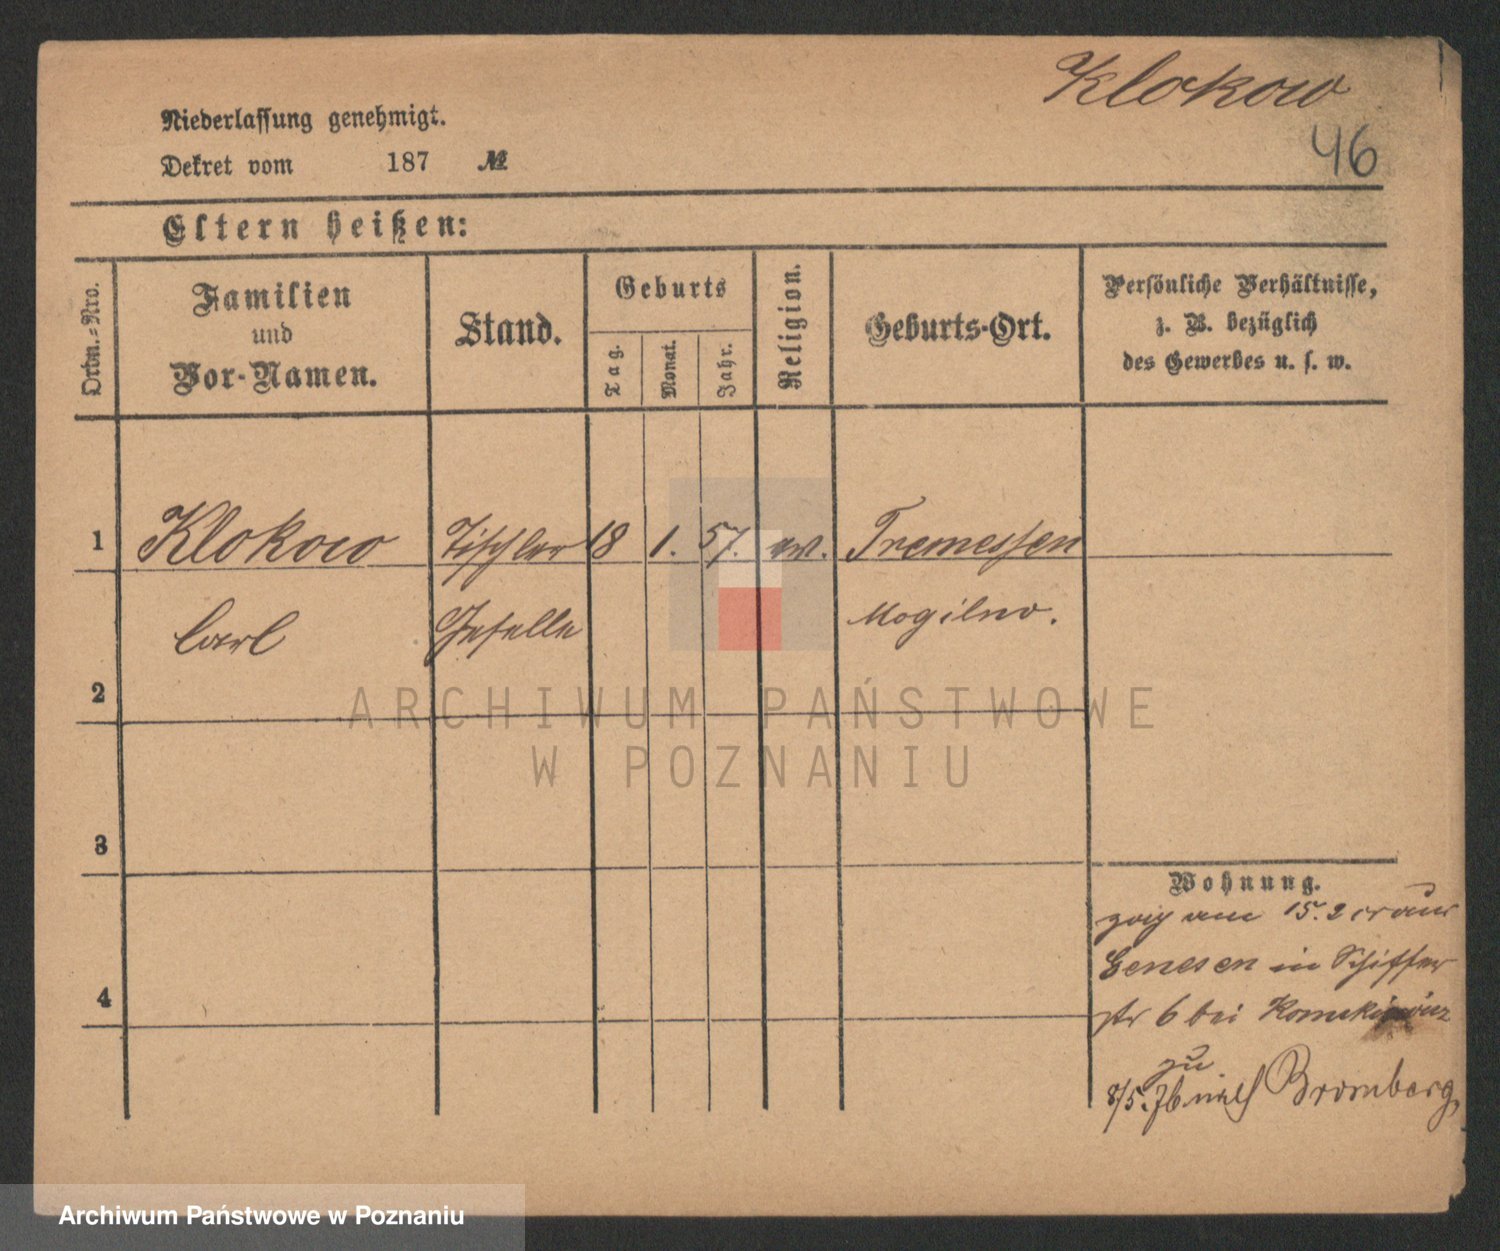 Klokow
46
Niederlassung genehmigt.
Dekret vom 187 №
Eltern heißen:
Ordn.=Nro.
Familien
und
Vor-Namen.
Stand.
Geburts
Tag.
Monat.
Jahr.
Religion.
Geburts-Ort.
Persönliche Verhältnisse,
z. B. bezüglich
des Gewerbes u. s. w.
1 Klokow Tischler 18 1. 57. ev. Tremessen
Carl Geselle Mogilno.
2
ARCHIWUM PAŃSTWOWE
W POZNANIU
3
Wohnung.
zog am 15.2 cr aus
Genesen in Schiffer
4
str 6 bei
zu
8/5.76 nach Bromberg
Archiwum Państwowe w Poznaniu